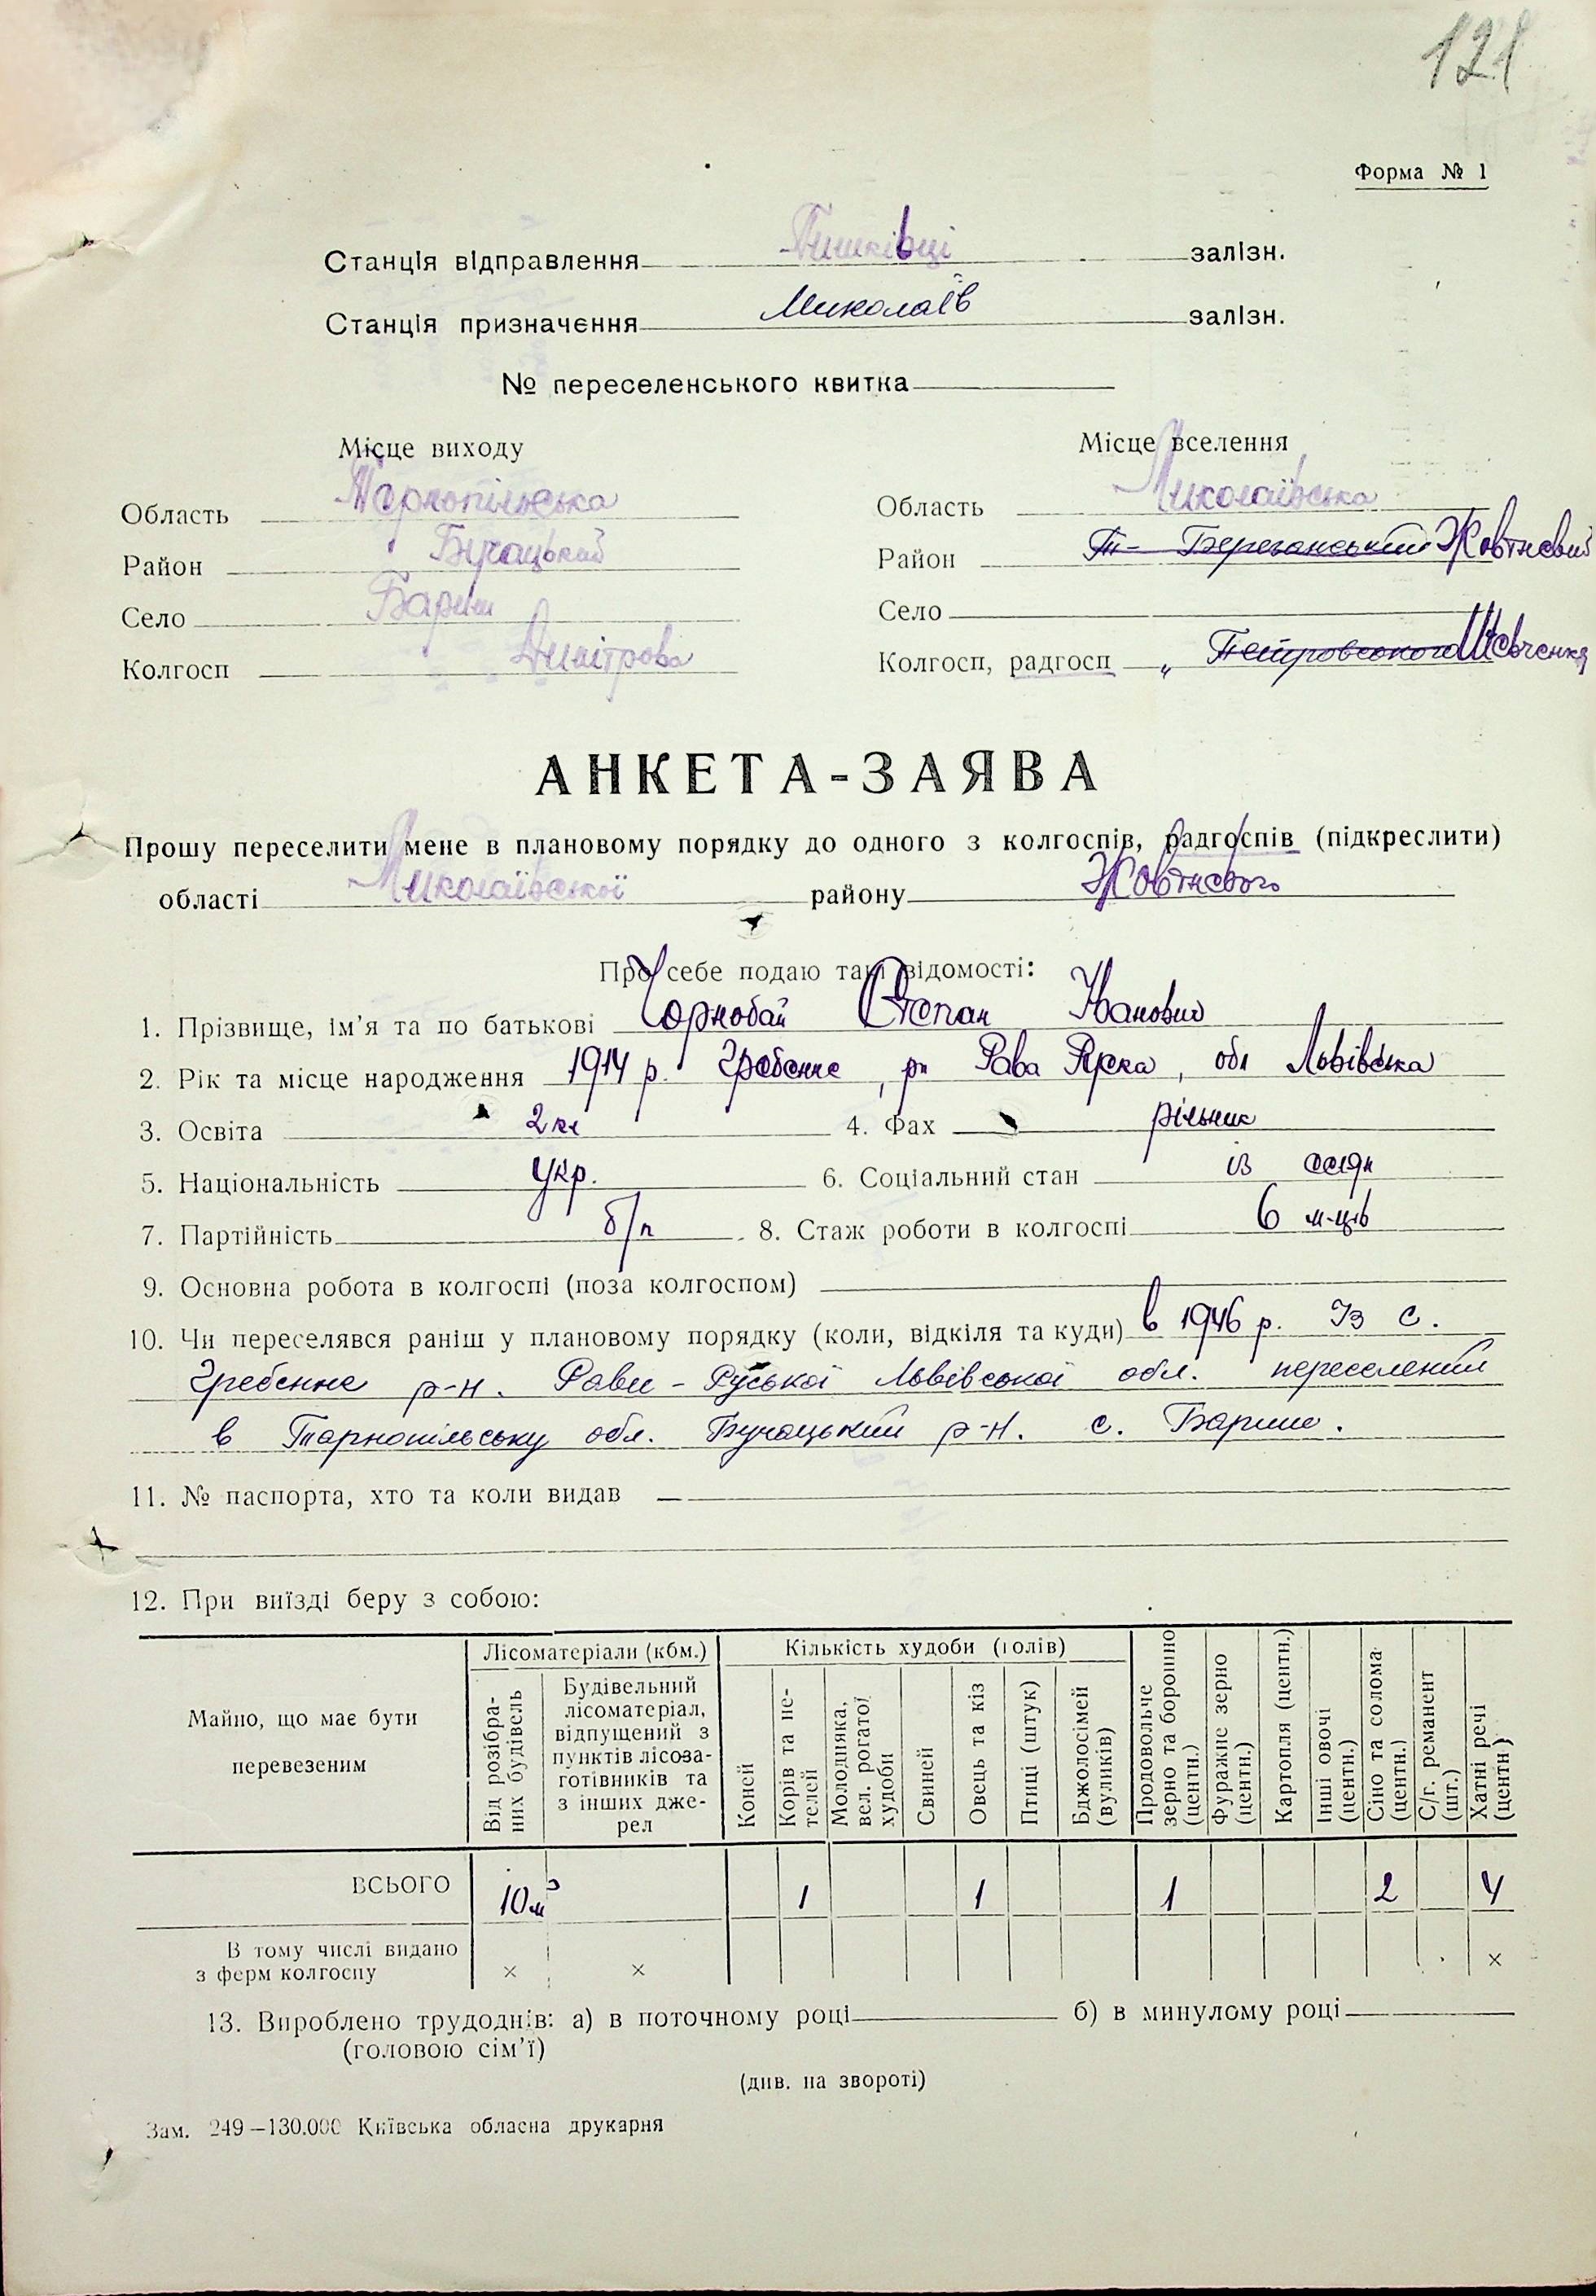 121
Форма № 1
Станція відправлення Пишківці залізн.
Станція призначення Миколаїв залізн.
№ переселенського квитка
Місце виходу
Область Тарнопільська
Район Бучацький
Село Бариш
Колгосп Димітрова
Місце вселення
Область Миколаївська
Район Т- Березанський Жовтневий
Село
Колгосп, радгосп „ Петровського Шевченка
АНКЕТА-ЗАЯВА
Прошу переселити мене в плановому порядку до одного з колгоспів, радгоспів (підкреслити)
області Миколаївської району Жовтневого
Про себе подаю такі відомості:
1. Прізвище, ім’я та по батькові Чорнобай Степан Іванович
2. Рік та місце народження 1914 р. Гребенне, рн Рава Руска, обл Львівска
3. Освіта 2 кл 4. Фах рільник
5. Національність укр. 6. Соціальний стан із селян
7. Партійність б/п 8. Стаж роботи в колгоспі 6 м-ців
9. Основна робота в колгоспі (поза колгоспом)
10. Чи переселявся раніш у плановому порядку (коли, відкіля та куди) в 1946 р. Із с.
Гребенне р-н. Рави-Руської Львівської обл. переселений
в Тарнопільську обл. Бучацький р-н. с. Бариш.
11. № паспорта, хто та коли видав —
12. При виїзді беру з собою:
Майно, що має бути перевезеним
Лісоматеріали (кбм.)
Від розібраних будівель
Будівельний лісоматеріал, відпущений з пунктів лісозаготівників та з інших джерел
Кількість худоби (голів)
Коней
Корів та нетелей
Молодняка, вел. рогатої худоби
Свиней
Овець та кіз
Птиці (штук)
Бджолосімей (вуликів)
Продовольче зерно та борошно (центн.)
Фуражне зерно (центн.)
Картопля (центн.)
Інші овочі (центн.)
Сіно та солома (центн.)
С/г. реманент (шт.)
Хатні речі (центн)
ВСЬОГО 10 м³ 1 1 1 2 4
В тому числі видано з ферм колгоспу × × ×
13. Вироблено трудоднів: а) в поточному році б) в минулому році
(головою сім’ї)
(див. на звороті)
Зам. 249—130.000 Київська обласна друкарня